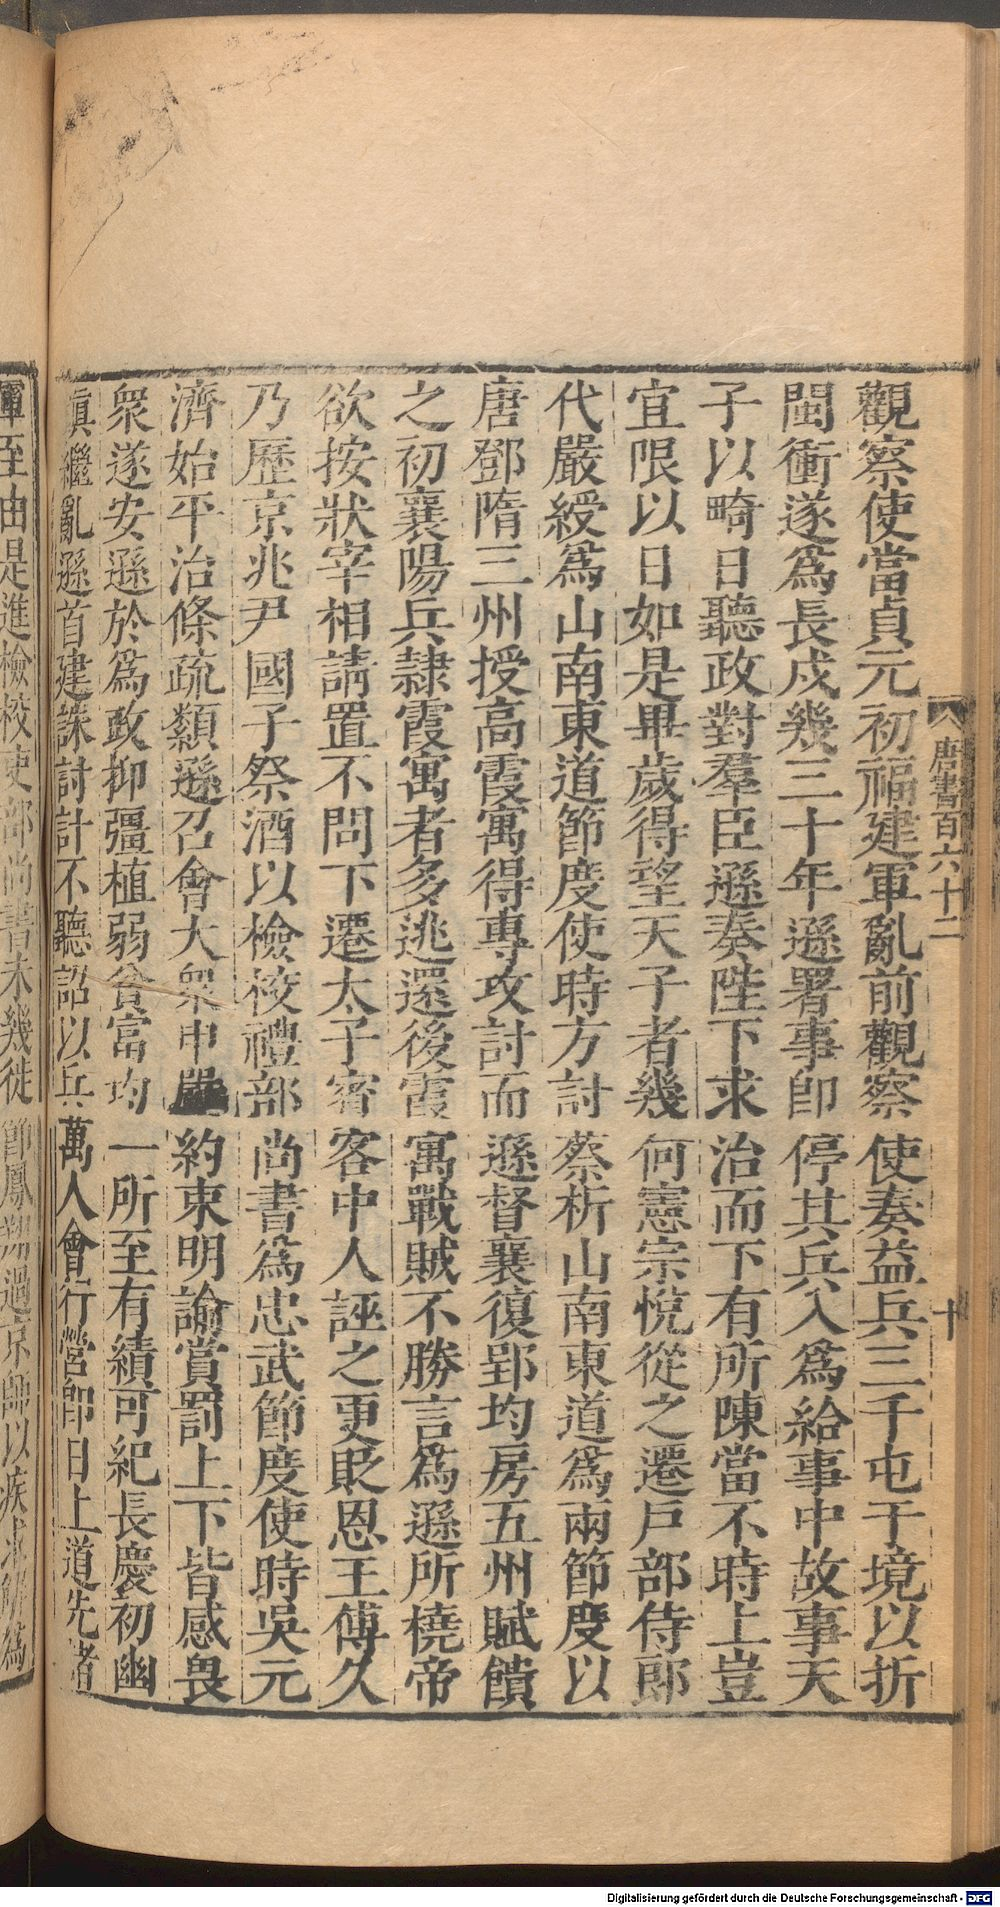 觀察使當貞元初福建軍亂前觀察使奏益兵三千屯于境以折
閩衝遂爲長戍幾三十年遜署事卽停其兵入爲給事中故事天
子以畸日聽政對羣臣遜奏陛下求治而下有所陳當不時上豈
宜限以日如是畢歲得望天子者幾何憲宗悅從之遷戸部侍郎
代嚴綬爲山南東道節度使時方討蔡析山南東道爲兩節度以
唐鄧隋三州授高霞寓得專攻討而遜督襄復郢均房五州賦饋
之初襄陽兵隷霞寓者多逃還後霞寓戰賊不勝言爲遜所橈帝
欲按狀宰相請置不問下遷太子賓客中人誣之更貶恩王傅久
乃歷京兆尹國子祭酒以檢校禮部尚書爲忠武節度使時吳元
濟始平治條疏纇遜召會大衆申嚴約束明諭賞罰上下皆感畏
衆遂安遜於爲政抑彊植弱貧富均一所至有績可紀長慶初幽
鎮繼亂遜首建誅討計不聽詔以兵萬人會行營卽日上道先諸
唐書百六十二
十
軍至由是進檢校吏部尚書未幾徙節鳳翔過京師以疾求解爲
Digitalisierung gefördert durch die Deutsche Forschungsgemeinschaft - DFG